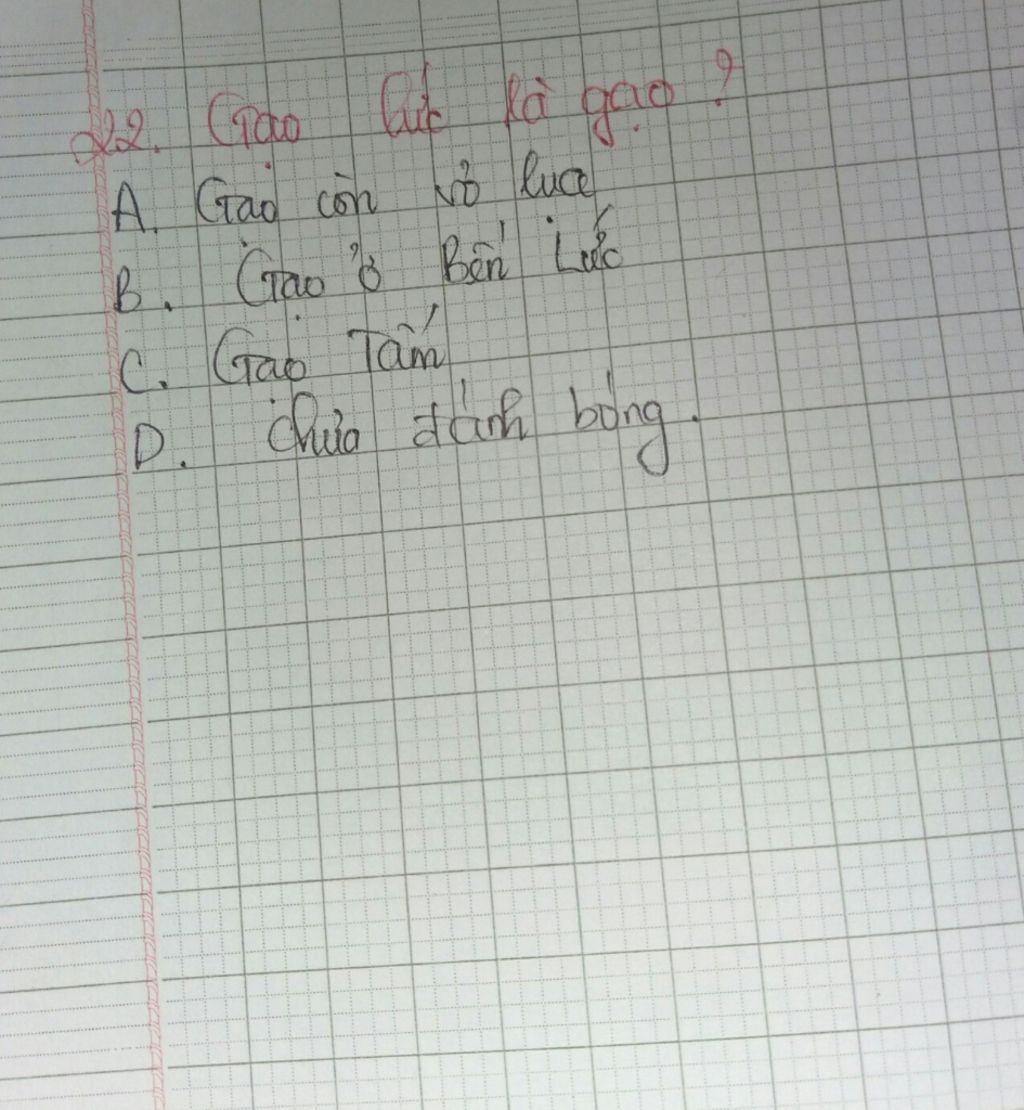 22. Gạo lức là gạo ?
A. Gạo còn vỏ lụa
B. Gạo ở Bến Lức
C. Gạo Tấm
D. chưa đánh bóng.